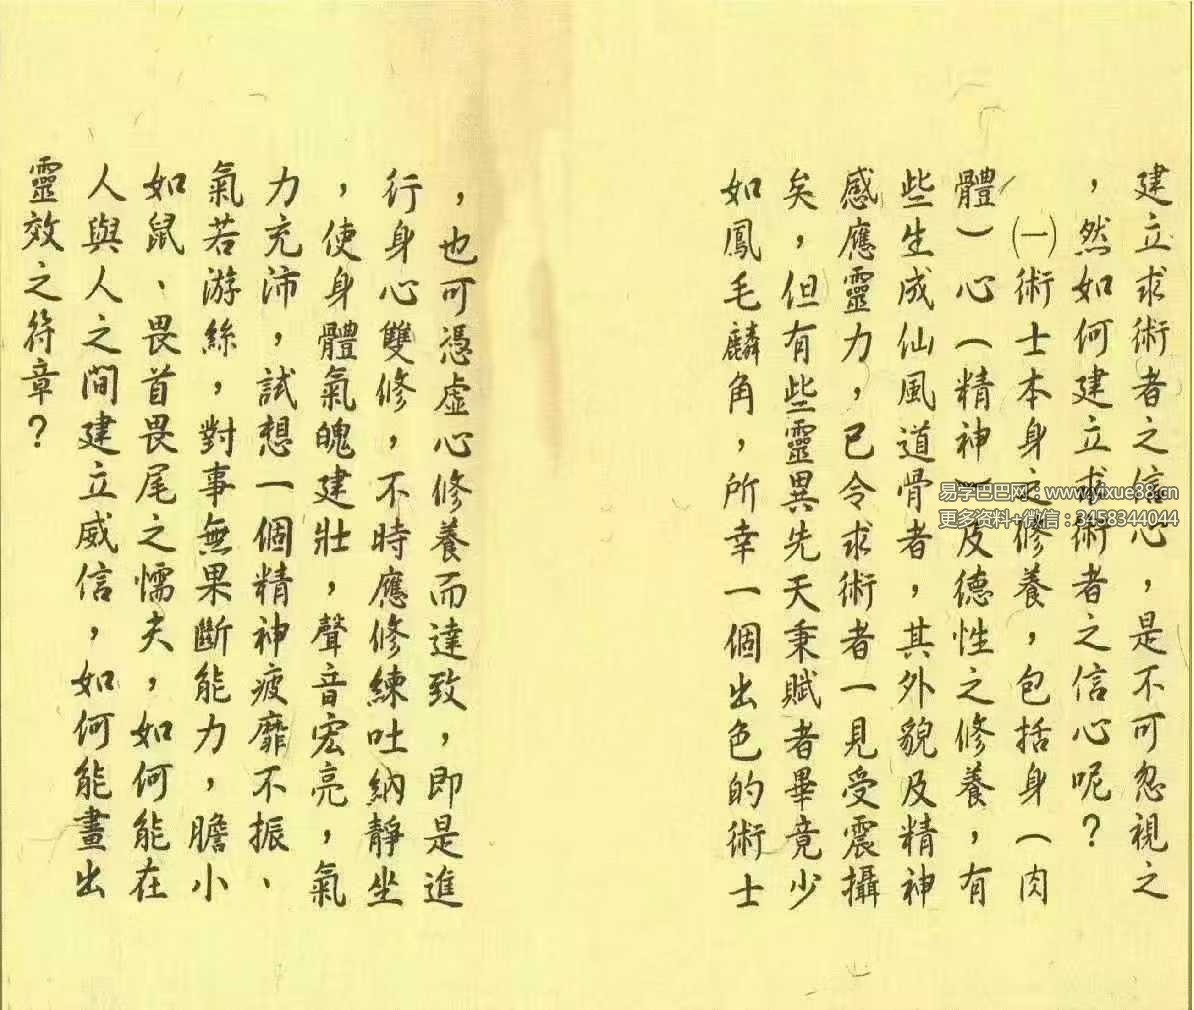 建立求術者之信心，是不可忽視之
，然如何建立求術者之信心呢？
㈠術士本身之修養，包括身（肉
體）心（精神）及德性之修養，有
些生成仙風道骨者，其外貌及精神
感應靈力，已令求術者一見受震攝
矣，但有些靈異先天秉賦者畢竟少
如鳳毛麟角，所幸一個出色的術士
，也可憑虛心修養而達致，即是進
行身心雙修，不時應修練吐納靜坐
，使身體氣魄建壯，聲音宏亮，氣
力充沛，試想一個精神疲靡不振、
氣若游絲，對事無果斷能力，膽小
如鼠、畏首畏尾之懦夫，如何能在
人與人之間建立威信，如何能畫出
靈效之符章？
易学巴巴网：www.yixue88.cn
更多资料+微信：3458344044